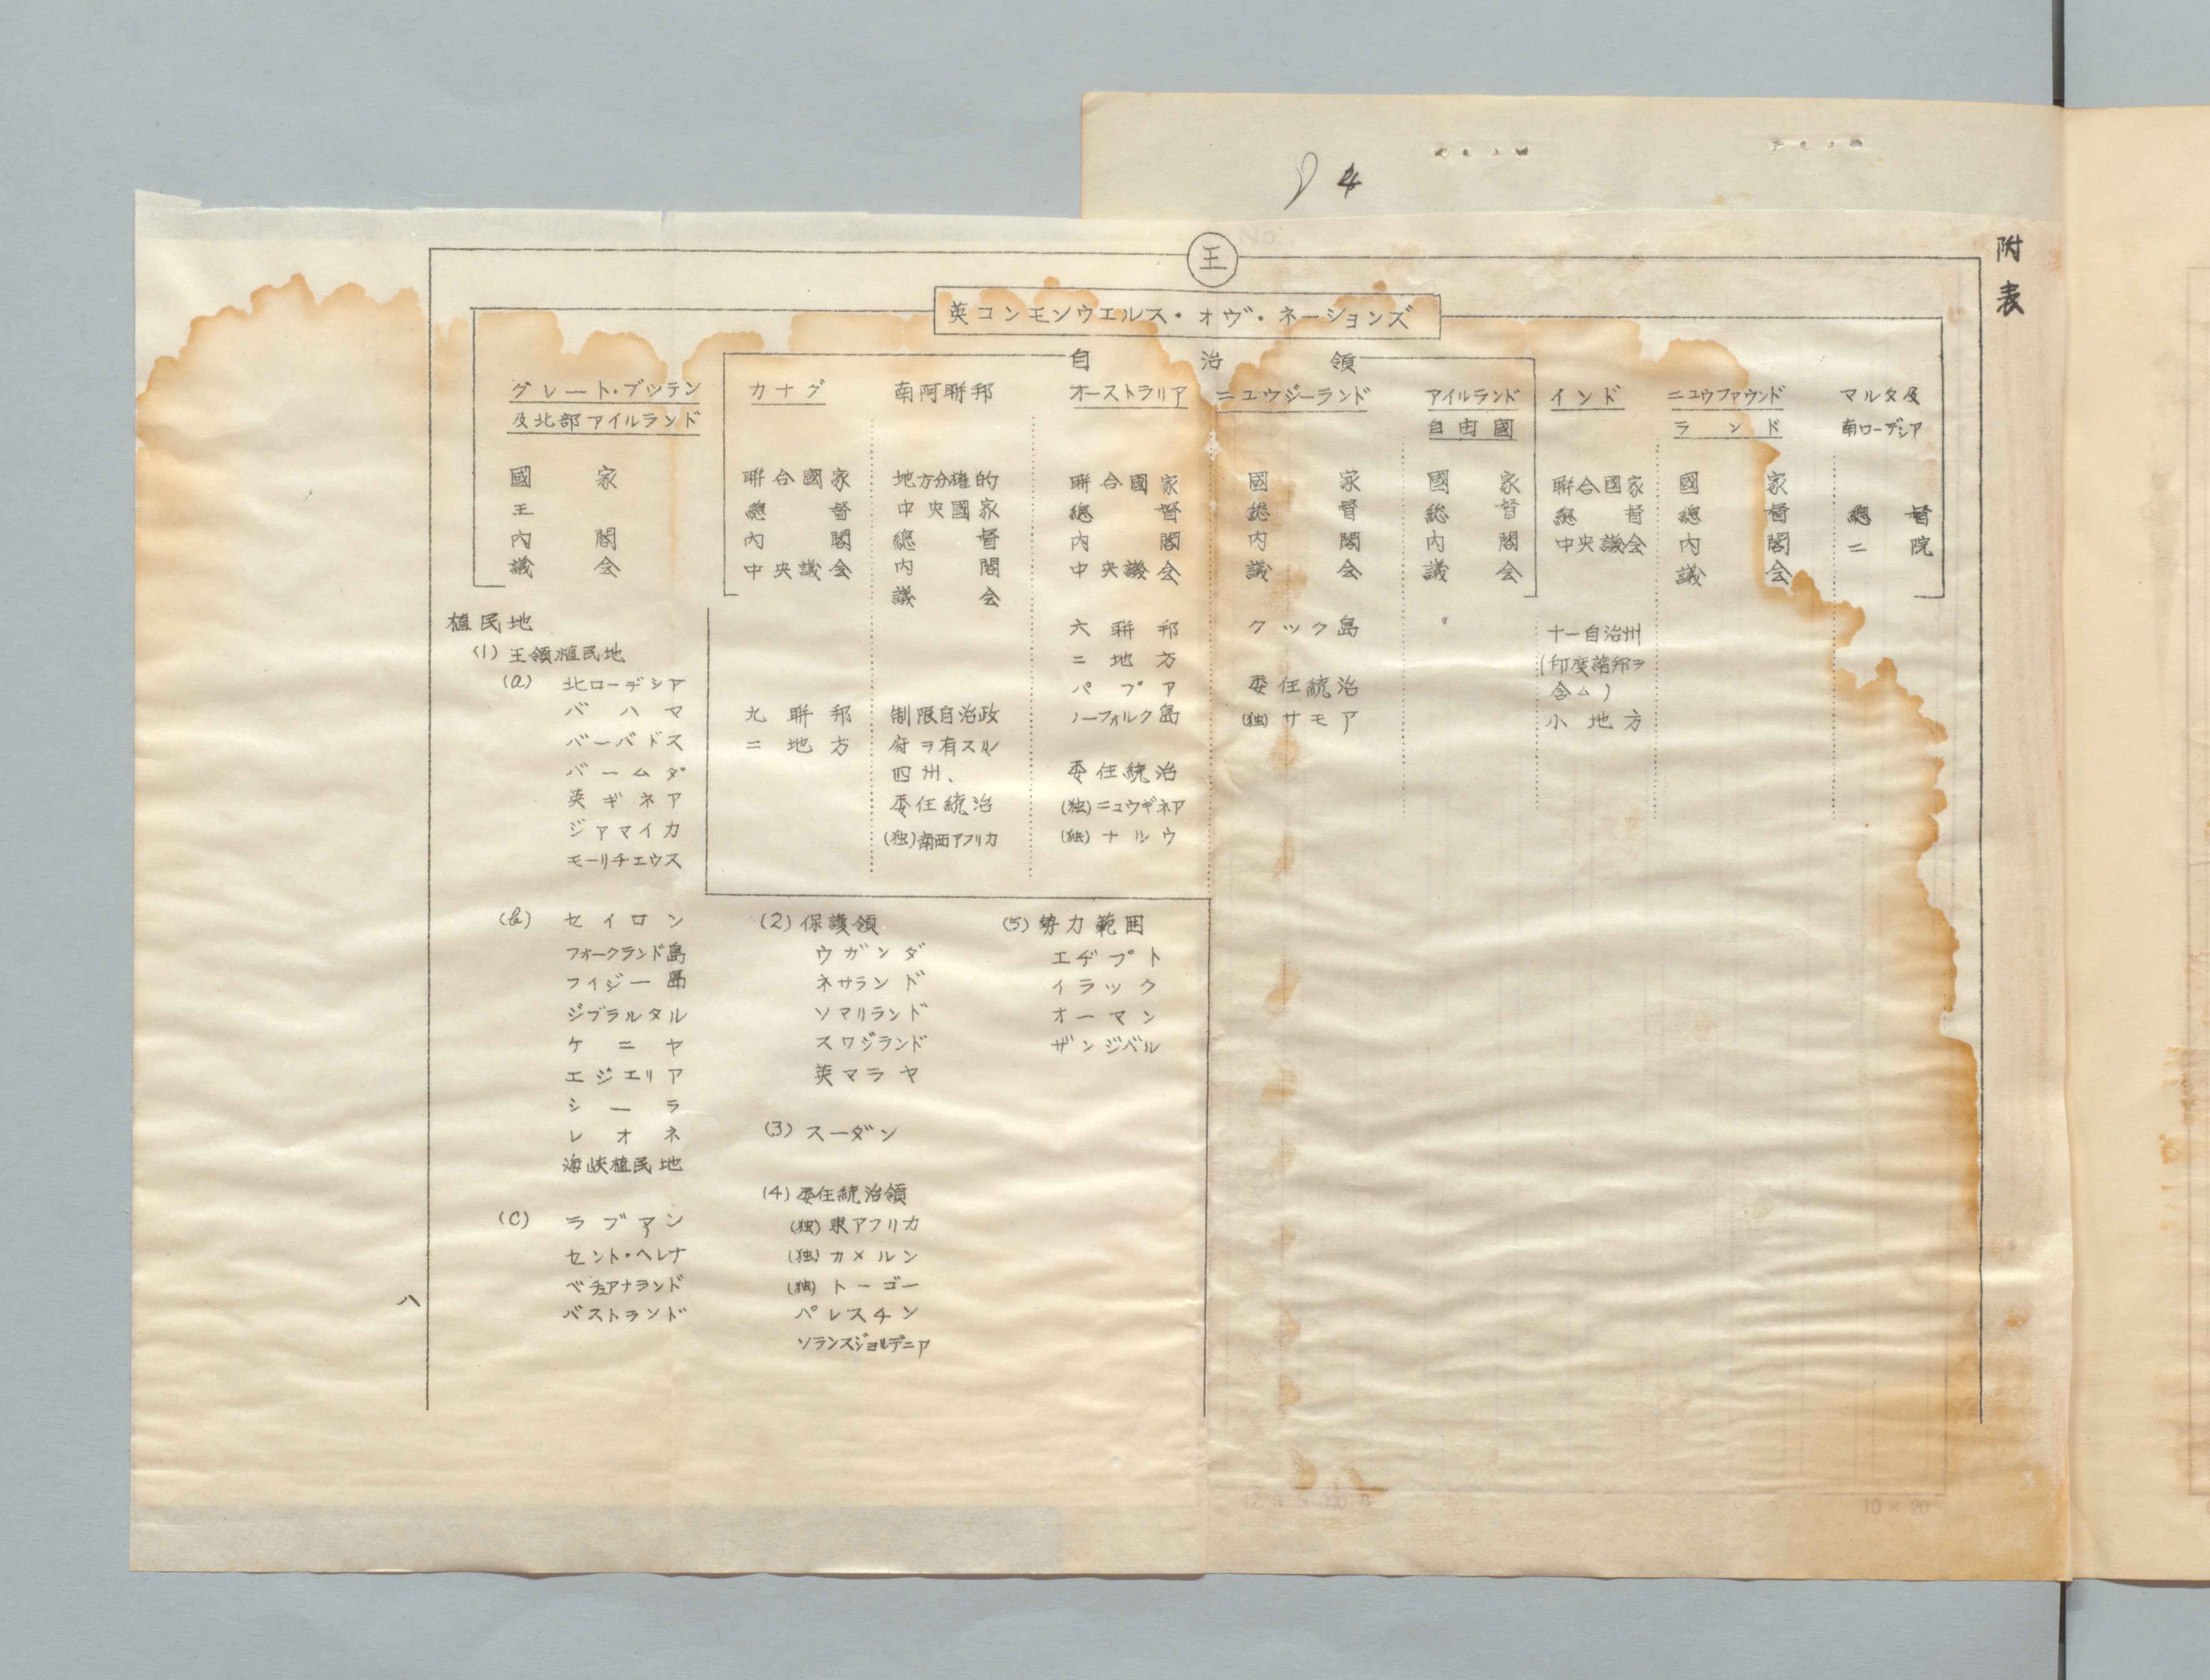 附表
4
王
英コンモンウエルス・オヴ・ネーションズ
自治領
グレート・ブリテン
及北部アイルランド
國家
王
内閣
議会
カナダ
聯合國家
總督
内閣
中央議会
九聯邦
二地方
南阿聯邦
地方分権的
中央國家
總督
内閣
議会
制限自治政
府ヲ有スル
四州、
委任統治
(独)南西アフリカ
オーストラリア
聯合國家
總督
内閣
中央議会
六聯邦
二地方
パプア
ノーフォルク島
委任統治
(独)ニュウギネア
(独)ナルウ
ニュウジーランド
國家
総督
内閣
議会
クック島
委任統治
(独)サモア
アイルランド
自由國
國家
総督
内閣
議会
インド
聯合國家
總督
中央議会
十一自治州
(印度諸邦ヲ
含ム)
小地方
ニュウファウンド
ランド
國家
總督
内閣
議会
マルタ及
南ローデシア
總督
二院
植民地
(1)王領植民地
(a)北ローデシア
バハマ
バーバドス
バームダ
英ギネア
ジァマイカ
モーリチェウス
(b)セイロン
フォークランド島
フィジー島
ジブラルタル
ケニヤ
エジエリア
シーラ
レオネ
海峡植民地
(C)ラブアン
セント・ヘレナ
ベチュアナランド
バストランド
(2)保護領
ウガンダ
ネサランド
ソマリランド
スワジランド
英マラヤ
(3)スーダン
(4)委任統治領
(独)東アフリカ
(独)カメルン
(独)トーゴー
パレスチン
ソランスジョルデニア
(5)勢力範囲
エヂプト
イラック
オーマン
ザンジバル
八
10×20